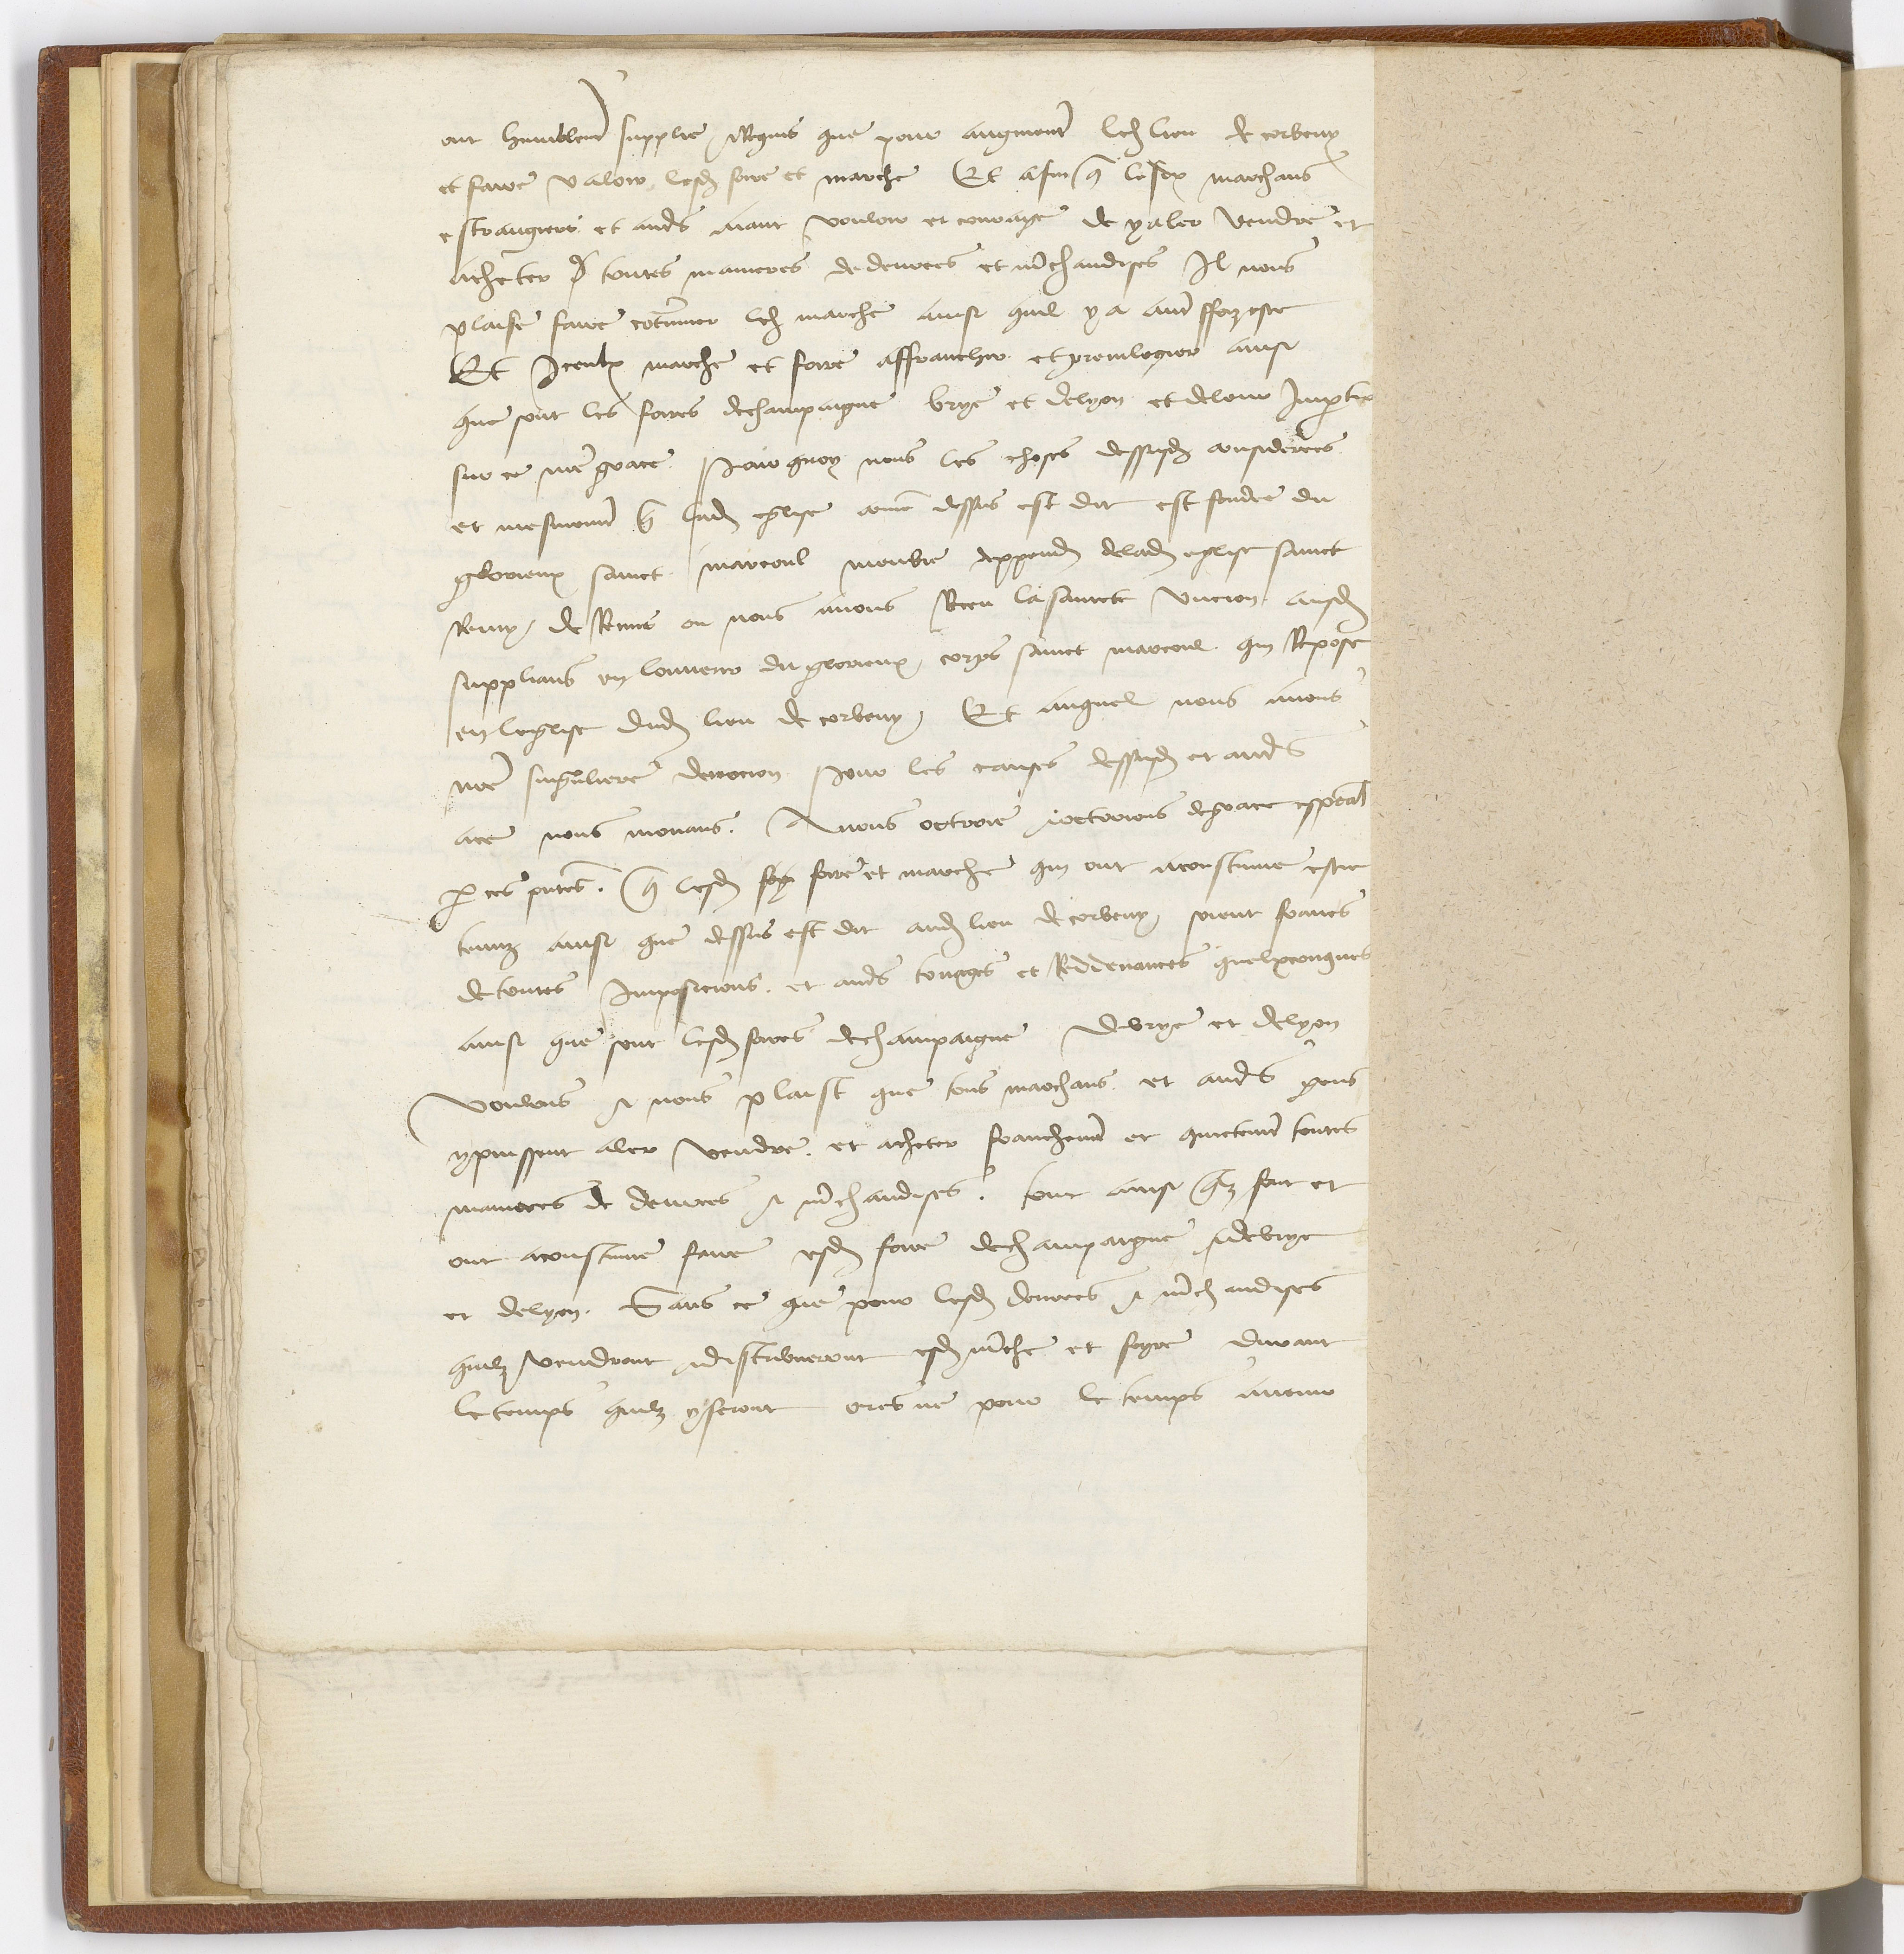 ont humblemt supplie & Requis que pour augmentr led lieu de corbeny
et faire valoir lesd foire et marche Et afin q lesdx marchans
estrangiers et auts aiant vouloir et couraige de y aler vendre et
achecter toutes manieres de denrees et mchandises Il nous
plaise faire cotinuer led marche ainsi quil y a autffoiz este
Et Iceulx marche et foire affranchir et preuilegier ainsi
que sont les foires de champaigne brye et de lyon et de leur Impartir
sur ce nre grace Pourquoy nous les choses dessusd considerees
et mesmemt q lad eglise come dessus est dit est fondee du
glorieux sainct marcoul membre deppend de lad eglise sainct
Remy de Reims ou nous auons Receu la saincte vncion ausd
supplians en lonneur du glorieux corps sainct marcoul qui Repose
en leglise dud lieu de corbeny Et auquel nous auons
nre singuliere deuocion Pour les causes dessusd et auts
a ce nous mouans. Auons octroie & octroions de grace espeal
p ces pntes. q lesd foire et marche qui ont acoustume estre
tenuz ainsi que dessus est dit aud lieu de corbeny soient francs
de toutes Imposicions. et auts treuages et Reddeuances quelxconques
ainsi que sont lesd foires de champaigne de brye et de lyon
Voulons & nous plaist que tous marchans et auts gens
y puissent aler vendre. et acheter franchemt et quictemt toutes
manieres de denrees & mchandises. tout ainsi qlz font et
ont acoustume faire esd foire de champaigne & de brye
et de lyon. Sans ce que pour lesd denrees & mchandises
quilz vendront & distribueront esd mche et foyre durant
le temps quilz y seront ores ne pour le temps auenir